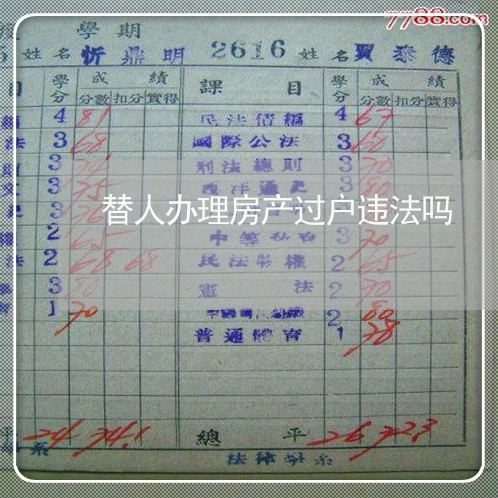 7788.com
學期
姓名 忻鼎明 2616 姓名 賈泰德
目 學分 成績 課目 學分 成績
分數 扣分 實得 分數 扣分 實得
4 81 民法債編 4 67
法 3 68 國際公法 3 60
3 刑法總則 3 70
3 75 西洋通史 3 80
替人办理房产过户违法吗
2 65 3 70
法 2 68 68 民法物權 2 65
3 80 憲法 2 70
1 70 2 80
普通體育 1 78
平 24 74.1 總平 26 72.3
系 法律學系